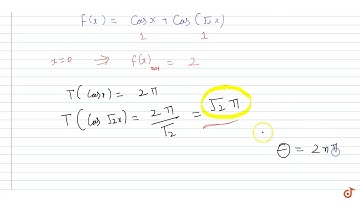 f(x) = Cos x + Cos (√2 x)
1 1
x=0 ⇒ f(x)max = 2
T(Cos x) = 2π
T(Cos √2x) = 2π/√2 = √2 π
θ = 2nπ